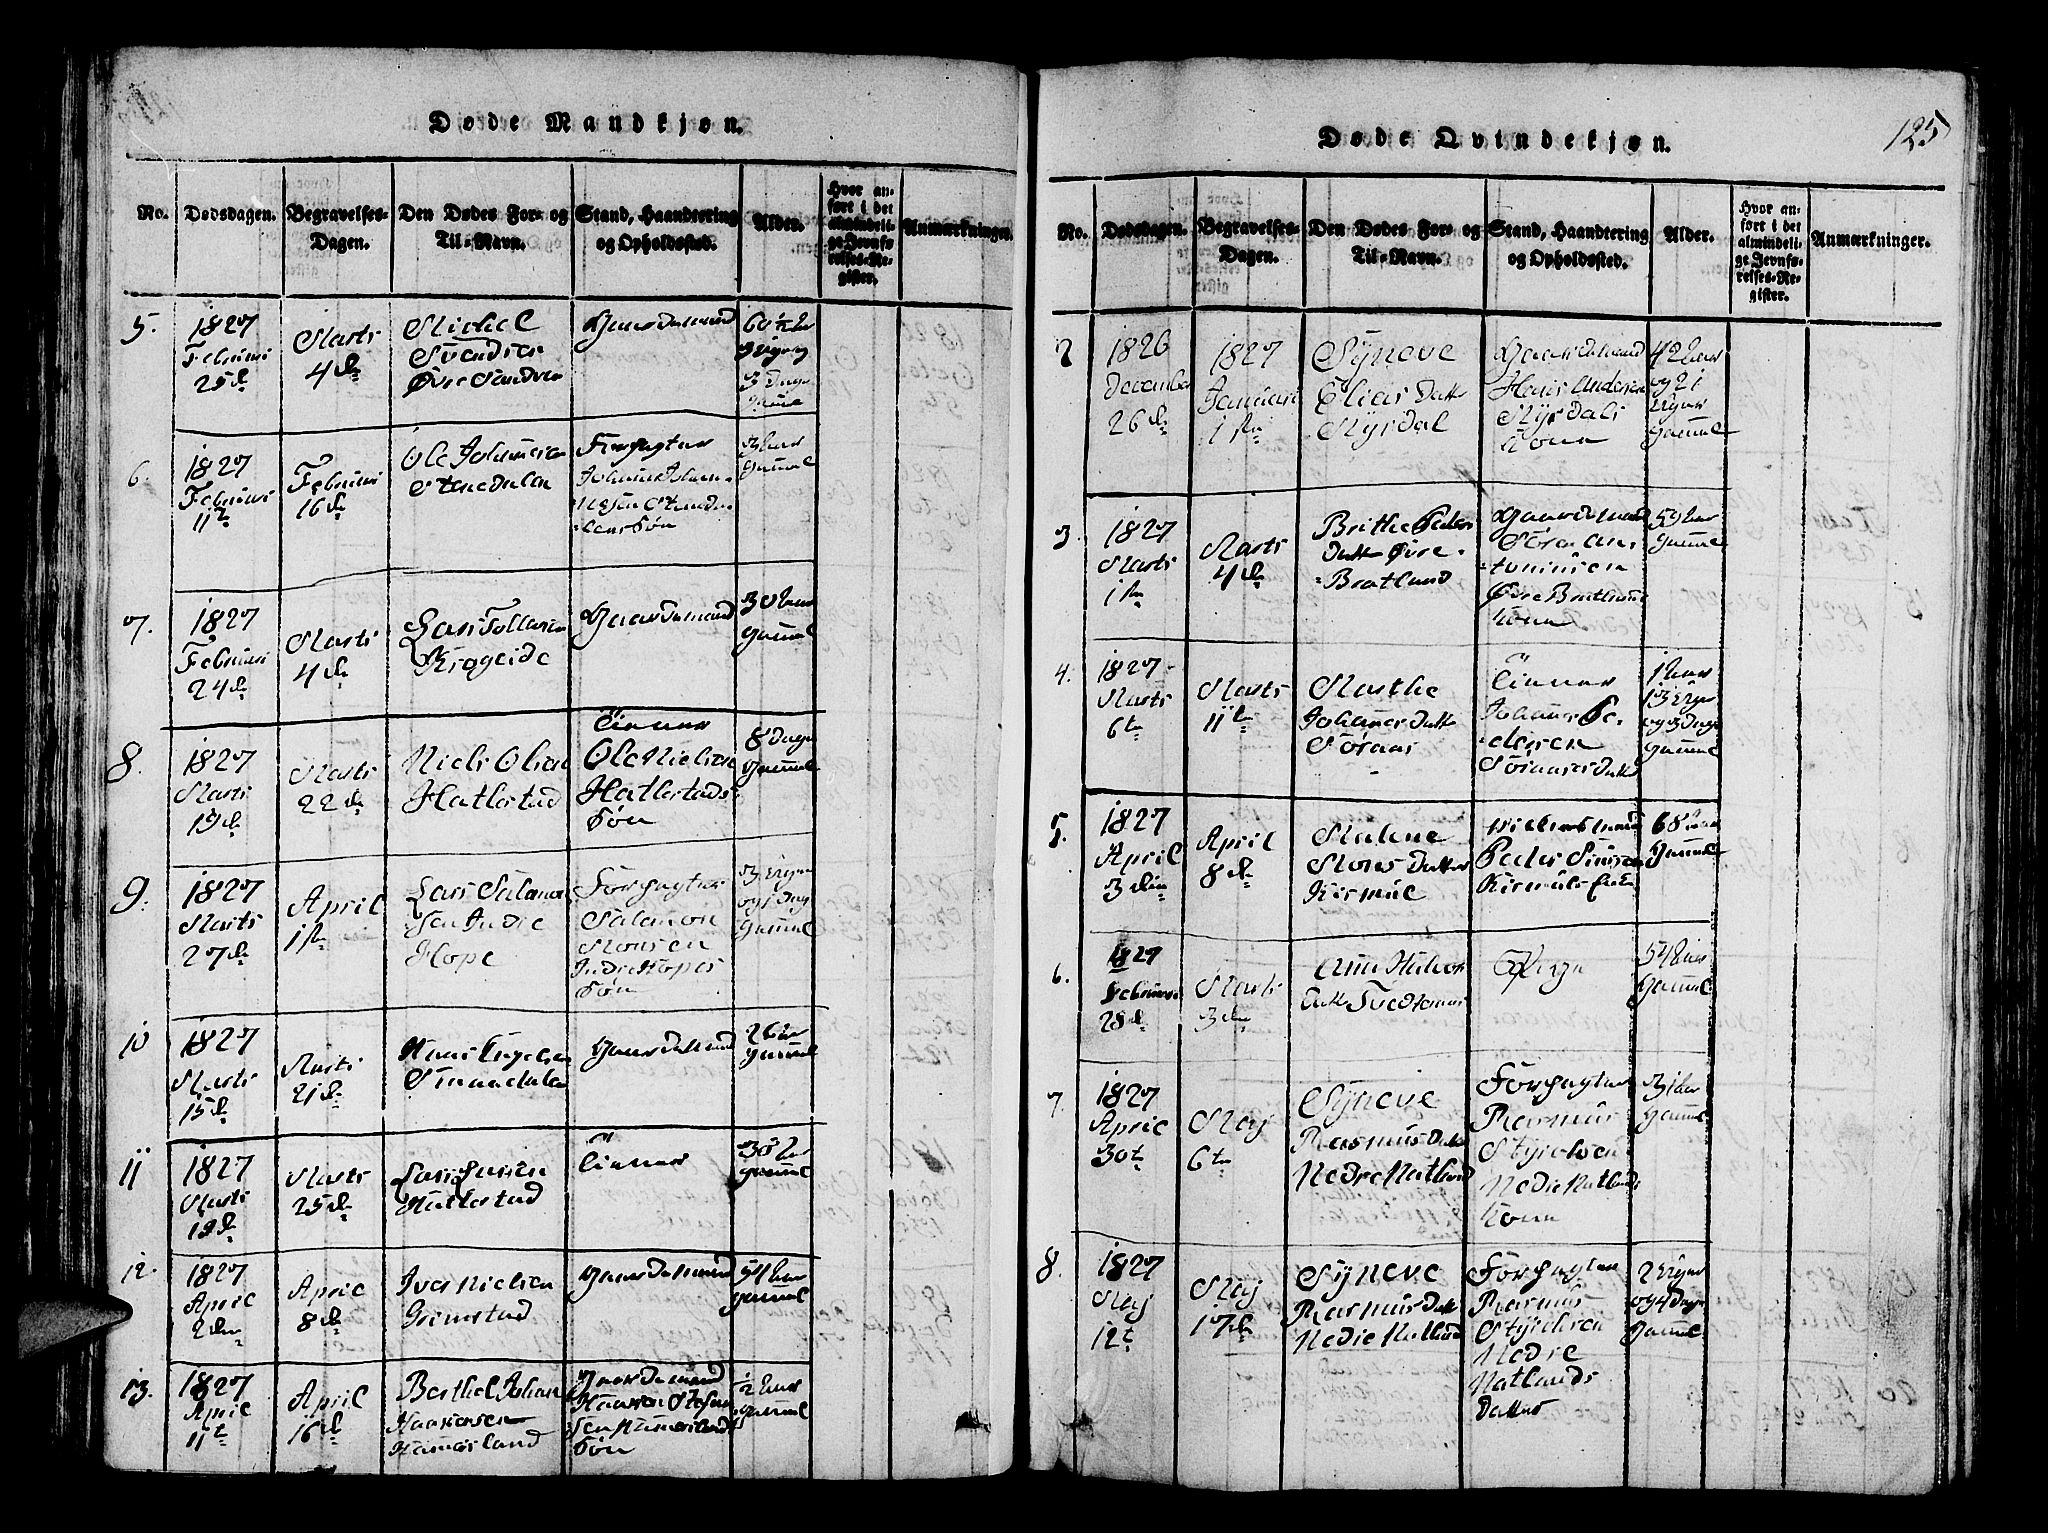 Døde Mandkjøn.
No.
Dødsdagen.
Begravelses-
Dagen.
Den Dødes For- og
Til-Navn.
Stand, Haandtering
og Opholdssted.
Alder.
Hvor an-
ført i det
almindeli-
ge Jevnfø-
relses-Re-
gister.
Anmærkninger.
5.
1827
Februari
25d
Marts
4de
Michel
Svendsen
Øvre
Gaardmand
60½
3 Dage
6.
1827
Februari
11te
Februari
16de
Ole Johannesen
Stenedalen
Forpagter
Søn
3 Aar
gammel
7.
1827
Februari
24de
Marts
4de
Lars Tollarsen
Krogeide
Gaardmand
30 Aar
gammel
8.
1827
Marts
19de
Marts
22de
Niels Olsen
Hatlestad
Tienner
Ole Nielsen
Hatlestads
Søn
8 Dage
gammel
9.
1827
Marts
27de
April
1ste
Lars Salamon
sen Indre
Hope
Forpagter
Salamon
Monsen
Indre Hopes
Søn
3 Uger
og 1 Dag
gammel
10
1827
Marts
15de
Marts
21de
Knud Engelsen
Gaardmand
26 Aar
gammel
11
1827
Marts
Marts
25de
Lars Larsen
Hatlestad
Tienner
30 Aar
gammel
12.
1827
April
2den
April
8de
Iver Nielsen
Grimstad
Gaardmand
54 Aar
gammel
13.
1827
April
11te
April
16de
Berthel Johan
Haavorsen
Hamersland
Gaardmand
Søn
½ Aar
gammel
Døde Qvindekjøn.
125
No.
Dødsdagen.
Begravelses-
Dagen.
Den Dødes For- og
Til-Navn.
Stand, Haandtering
og Opholdssted.
Alder.
Hvor an-
ført i det
almindeli-
ge Jevnfø-
relses-Re-
gister.
Anmærkninger.
2
1826
December
26de
1827
Januari
1ste
Syneve
Elias Datter
Myrdal
Gaardmand
Hans Andersen
Myrdals
Kone
42 Aar
og 21
Uger
gammel
3.
1827
Marts
1ste
Marts
4de
Brithe Peders
Datter Øvre
Bratland
Gaardmand
Søren An-
toniusen
Øvre Bratlands
Kone
59 Aar
gammel
4.
1827
Marts
6te
Marts
11te
Marthe
Johannes Datter
Søraas
Tienner
Johannes Pe-
dersen
Søraases Datter
1 Aar
13 Uger
og 3 Dage
gammel
5.
1827
April
3die
April
8de
Malene
Mons Datter
Kismul
Peder Simsen
Kismuls Enke
68 Aar
gammel
6.
1827
Februari
28de
Marts
3die
Anna Halvor
Datter Tvedteraas
Pige
54 Aar
gammel
7.
1827
April
30te
Maj
6te
Syneve
Rasmus Datter
Nedre Natland
Forpagter
Rasmus
Styrchsen
Nedre Natlands
Kone
31 Aar
gammel
8.
1827
Maj
12te
Maj
17de
Syneve
Rasmus Datter
Nedre Natland
Forpagter
Rasmus
Styrchsen
Nedre
Natlands
Datter
2 Uger
og 4 Dage
gammel